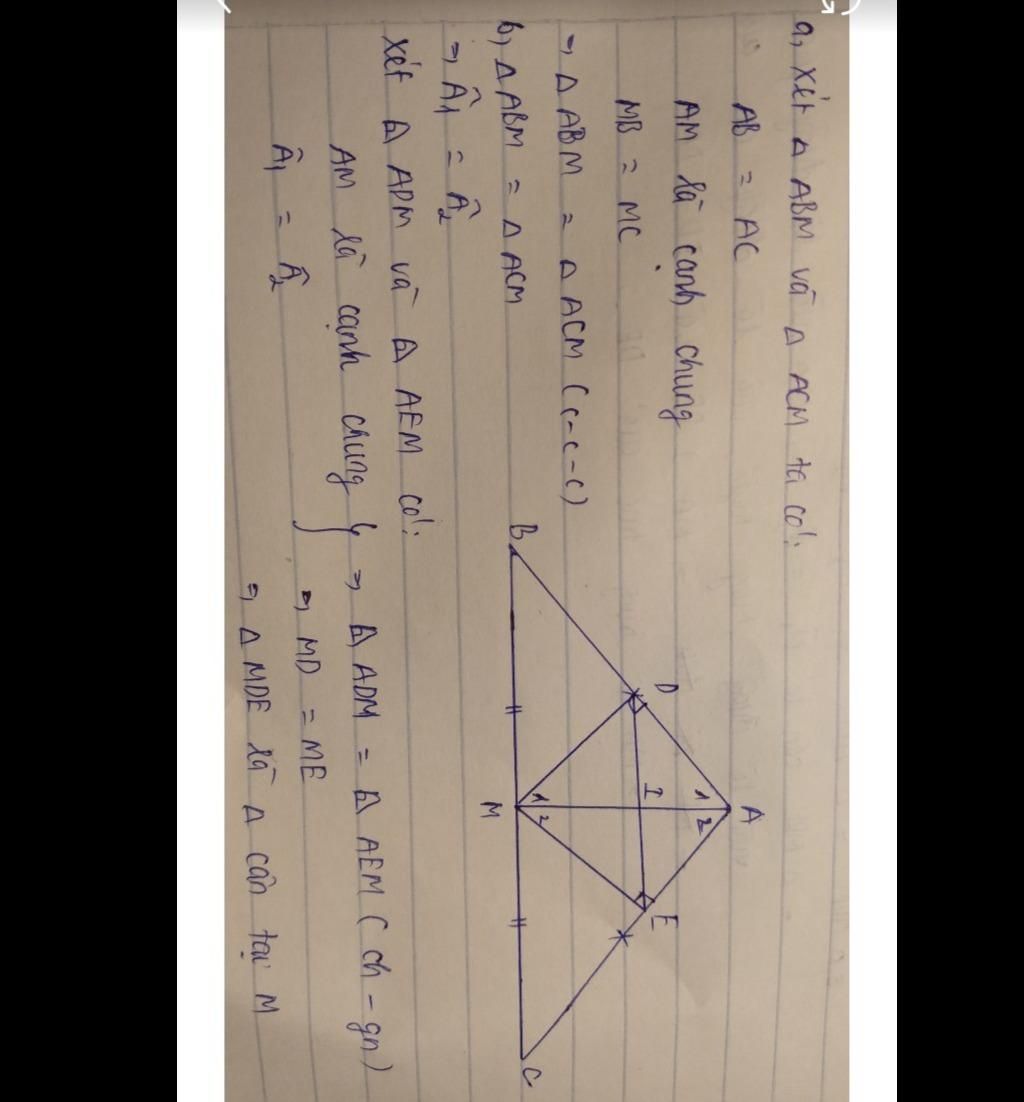 a, Xét Δ ABM và Δ ACM ta có:
AB = AC
AM là cạnh chung
MB = MC
⇒ Δ ABM = Δ ACM (c-c-c)
b, Δ ABM = Δ ACM
⇒ Â1 = Â2
Xét Δ ADM và Δ AEM có:
AM là cạnh chung } ⇒ Δ ADM = Δ AEM (ch - gn)
Â1 = Â2
⇒ MD = ME
⇒ Δ MDE là Δ cân tại M
A
1 2
D
I
E
B
1 2
M
C